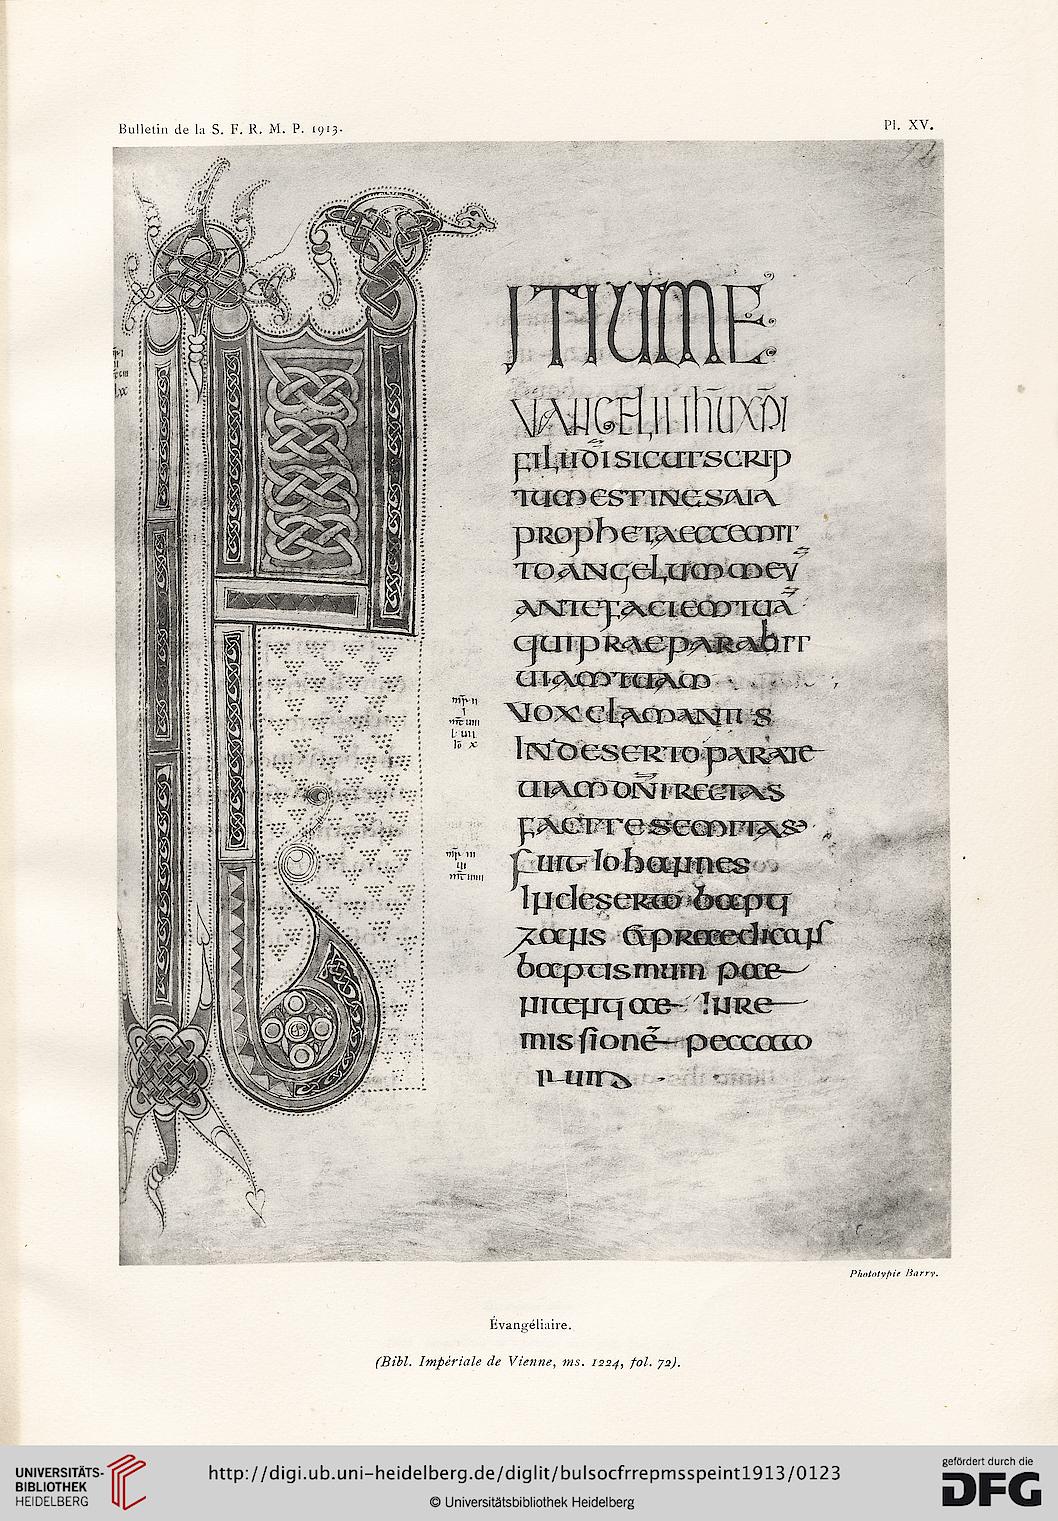 Bulletin de la S. F. R. M. P. 1913.
Pl. XV.
72
ITIUME
VANGELII IHU XPI
FILII DI SICUT SCRIP
TUM EST IN ESAIA
PROPHETA ECCE MIT
TO ANGELUM MEU
ANTE FACIEM TUA
QUI PRAEPARABIT
UIAM TUAM
VOX CLAMANTIS
IN DESERTO PARATE
UIAM DNI RECTAS
FACITE SEMITAS
Fuit Iohannes
In deserto bapti
zans & praedicans
baptismum pae
nitentiae in re
missionē peccato
rum
Phototypie Barry.
Évangéliaire.
(Bibl. Impériale de Vienne, ms. 1224, fol. 72).
UNIVERSITÄTS-
BIBLIOTHEK
HEIDELBERG
http://digi.ub.uni-heidelberg.de/diglit/bulsocfrrepmsspeint1913/0123
© Universitätsbibliothek Heidelberg
gefördert durch die
DFG